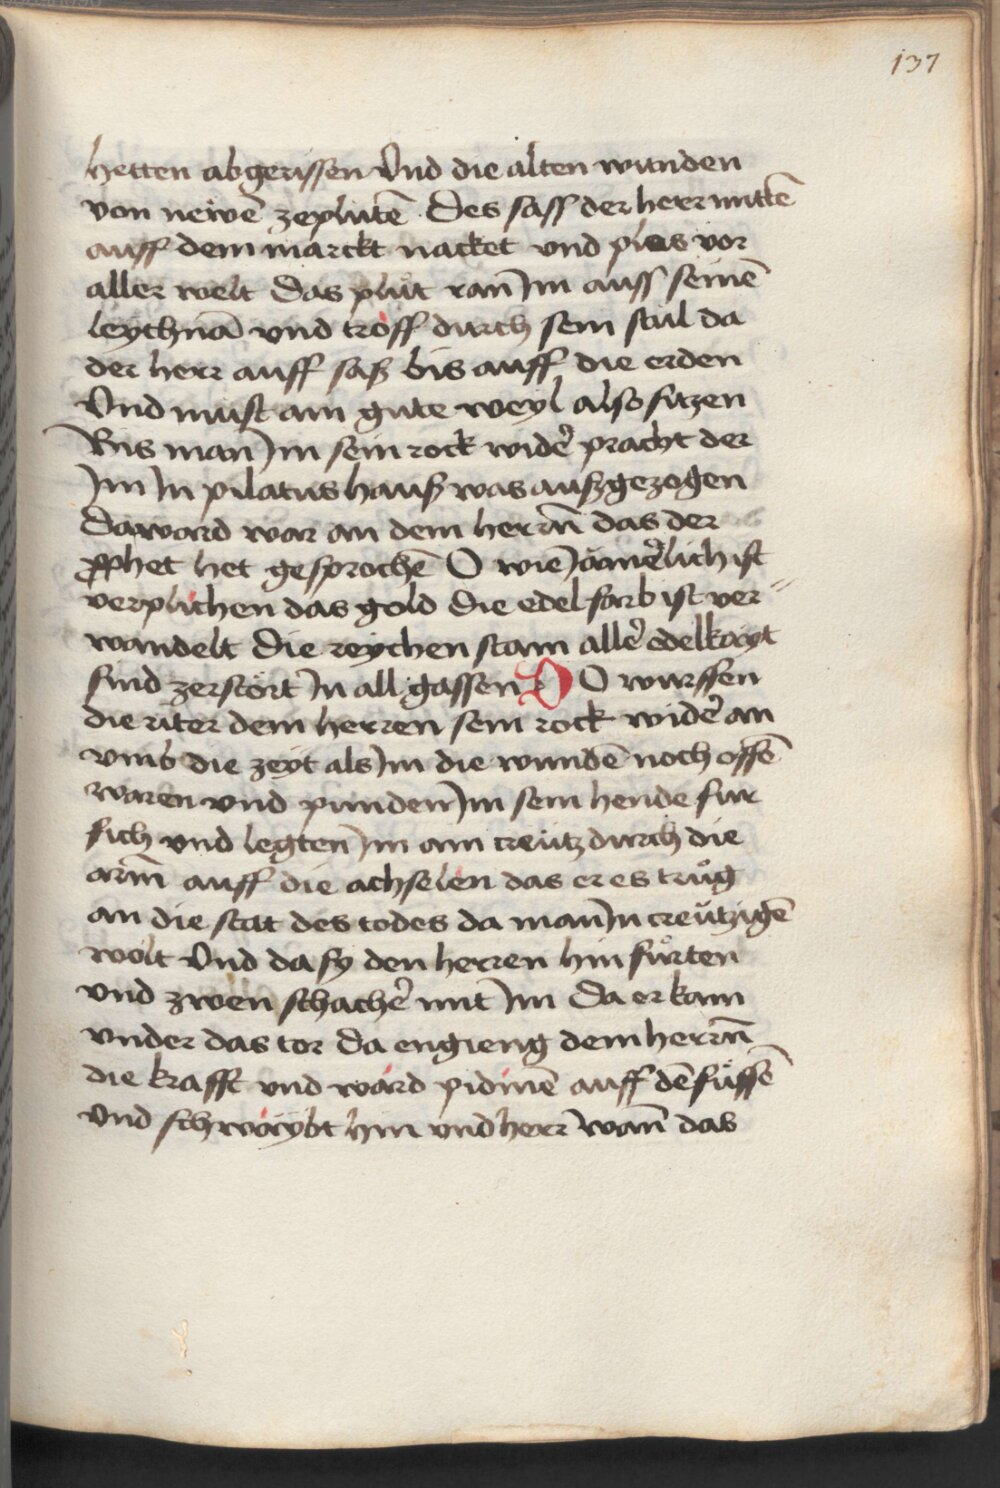 137
hetten abgerissen Vnd die alten wunden
von newē zeplutē Des sass der herr mittē
auff dem marckt nacket vnd plos vor
aller welt Das plut̊ ran Im auss seinē
leychnā vnd troff durch sein stul da
der herr auff saß bis auff die erden
Vnd must ain gute weyl also sitzen
Bis man Im sein rock widē pracht der
Im In pilatus hauß was außgezogen
Da ward war an dem herrn̄ das der
p̄phet het gesprochē O wie Iāmerlich ist
verplichen das gold Die edel farb ist ver-
wandelt Die reychen stain allē edelkayt
sind zerstört In all gassen DO wurffen
die riter dem herren sein rock widē an
vmb die zeyt als Im die wundē noch offē
waren vnd punden Im sein hende fur
sich vnd legten Im ain creutz durch die
arm̄ auff die achselen das er es trůg
an die stat des todes da man In creützigē
wolt Vnd da sy den herren hin fůrten
vnd zwen schachē mit Im Da er kam
vnder das tor Da engieng dem herrn̄
die krafft vnd ward pidmē auff dē fůssē
Vnd schwaybt hin vnd herr wan̄ das